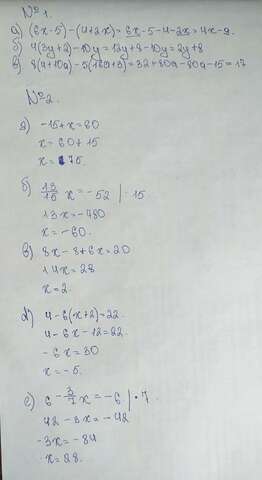 №1.
а) (6x-5)-(4+2x)=6x-5-4-2x=4x-9.
б) 4(3y+2)-10y=12y+8-10y=2y+8
в) 8(4+10a)-5(16a+3)=32+80a-80a-15=17
№2.
а) -15+x=60
x=60+15
x=75.
б) 13/15 x=-52 | ·15
13x=-780
x=-60.
в) 8x-8+6x=20
14x=28
x=2.
d) 4-6(x+2)=22
4-6x-12=22
-6x=30
x=-5.
е) 6-3/7 x=-6 | ·7
42-3x=-42
-3x=-84
x=28.